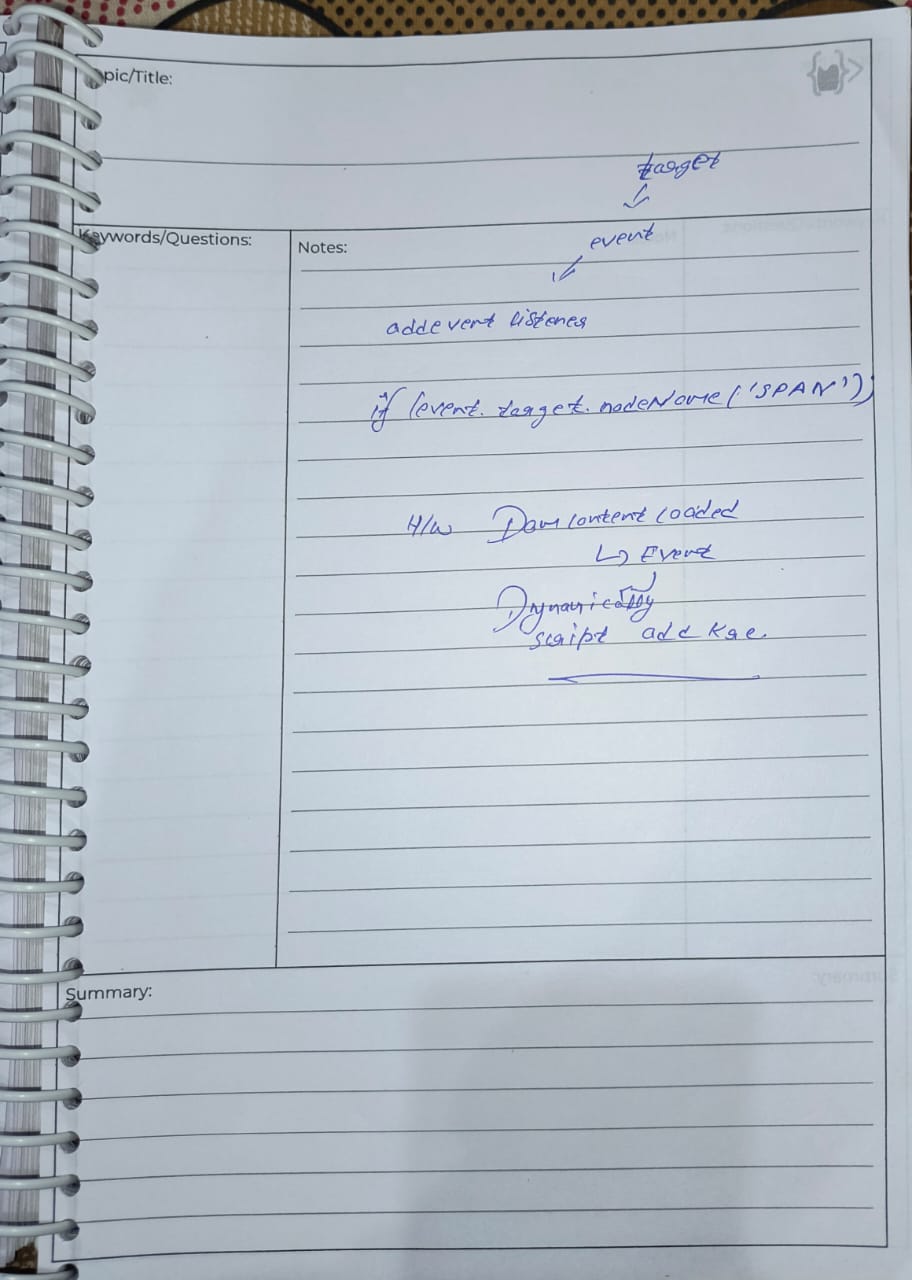 pic/Title:
target
Keywords/Questions:
Notes:
event
addevent listener
if (event. target. nodeName ('SPAN'))
H/w Dom Content Loaded
↳ Event
Dynamically
script add kre.
Summary: